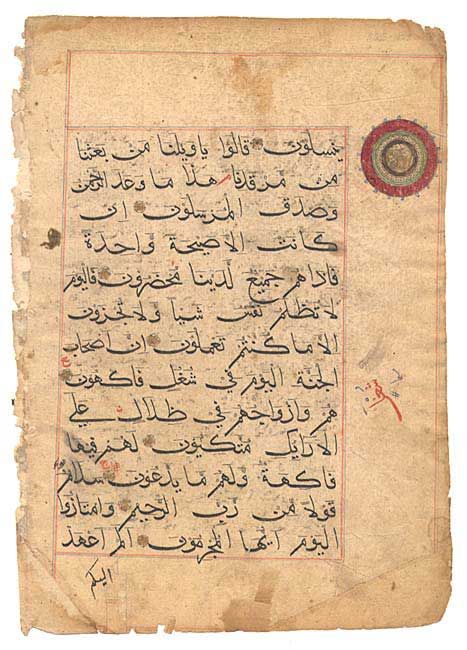 ينسلون قالوا ياويلنا من بعثنا
من مرقدنا هذا ما وعد الرحمن
وصدق المرسلون ان
كانت الا صيحة واحدة
فاذا هم جميع لدينا محضرون فاليوم
لا تظلم نفس شيا ولا تجزون
الا ما كنتم تعملون ان اصحاب
الجنة اليوم في شغل فاكهون
هم وازواجهم في ظلال على
الارايك متكيون لهم فيها
فاكهة ولهم ما يدعون سلام
قولا من رب الرحيم وامتازوا
اليوم ايها المجرمون الم اعهد
اليكم